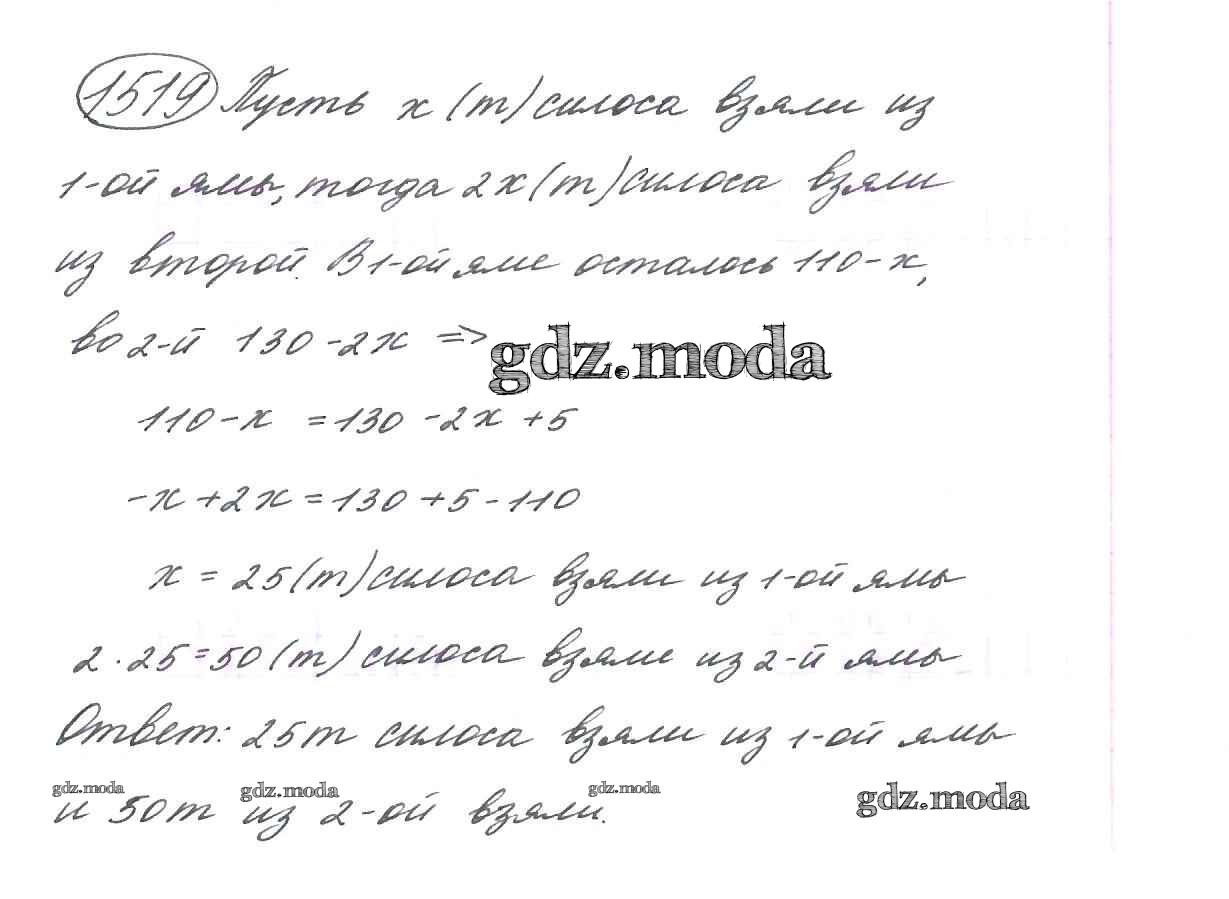 1519 Пусть x (т) силоса взяли из
1-ой ямы, тогда 2x (т) силоса взяли
из второй. В 1-ой яме осталось 110-x,
во 2-й 130-2x =>
gdz.moda
110-x = 130-2x+5
-x+2x=130+5-110
x = 25(т) силоса взяли из 1-ой ямы
2·25=50(т) силоса взяли из 2-й ямы
Ответ: 25т силоса взяли из 1-ой ямы
gdz.moda gdz.moda gdz.moda gdz.moda
и 50т из 2-ой взяли.